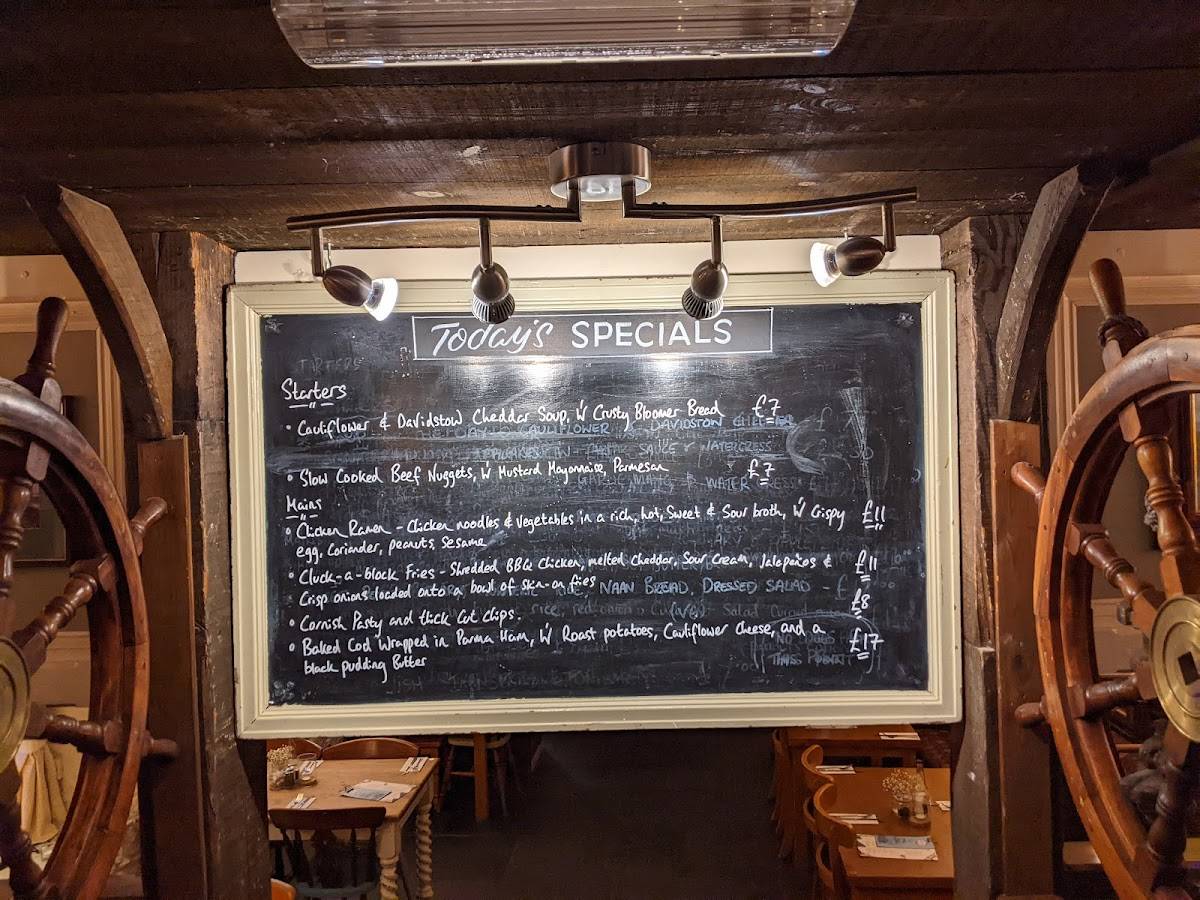 Today's SPECIALS
Starters
• Cauliflower & Davidstow Cheddar Soup, W' Crusty Bloomer Bread £7
• Slow Cooked Beef Nuggets, W' Mustard Mayonnaise, Parmesan £7
Mains
• Chicken Ramen - Chicken noodles & Vegetables in a rich, hot, Sweet & Sour broth, W' Crispy £11
egg, Coriander, peanuts, Sesame
• Cluck-a-block Fries - Shredded BBQ Chicken, melted Cheddar, Sour Cream, Jalepeños & £11
Crisp onions loaded onto a bowl of skin-on fries
• Cornish Pasty and thick Cut Chips. £8
• Baked Cod Wrapped in Parma Ham, W' Roast potatoes, Cauliflower Cheese, and a £17
black pudding Butter
NAAN BREAD, DRESSED SALAD